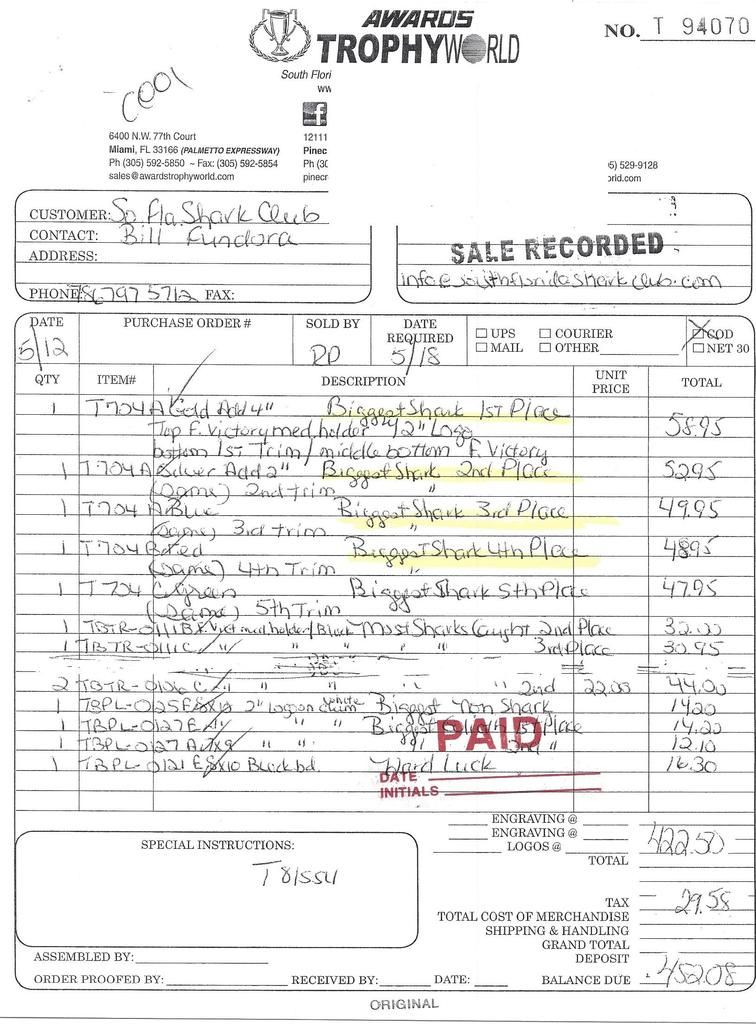 AWARDS
TROPHYWORLD
NO. T 94070
South Flori
ww
COOL
f
6400 N.W. 77th Court
Miami, FL 33166 (PALMETTO EXPRESSWAY)
Ph (305) 592-5850 ~ Fax: (305) 592-5854
sales@awardstrophyworld.com
12111
Pinec
Ph (30
pinecr
5) 529-9128
orld.com
CUSTOMER: So. Fla. Shark Club
CONTACT: Bill Fundora
ADDRESS:
PHONE: 786 797 5712 FAX:
SALE RECORDED
info@southfloridasharkclub.com
DATE 5/12
PURCHASE ORDER #
SOLD BY
DATE REQUIRED 5/18
UPS COURIER COD
MAIL OTHER NET 30
QTY ITEM# DESCRIPTION UNIT PRICE TOTAL
1 T704 A Gold Add 4" Biggest Shark 1st Place 58.95
Top F. Victory med. holder w/ 2" Logo
bottom 1st Trim / middle bottom F. Victory
1 T-704 A Silver Add 2" Biggest Shark 2nd Place 52.95
(Same) 2nd trim "
1 T704 A Blue Biggest Shark 3rd Place 49.95
(Same) 3rd trim "
1 T704 B Red Biggest Shark 4th Place 48.95
(Same) 4th Trim "
1 T704 C Green Biggest Shark 5th Place 47.95
(Same) 5th Trim
1 TBTR-0111B F. Vict med. holder/Black Most Sharks Caught 2nd Place 32.00
1 TBTR-0111C " " " " " 3rd Place 30.95
2 TBTR-0106 C " " " " 2nd 22.00 44.00
1 TBPL-0125E 8x10 2" logo on Biggest Non Shark 14.20
1 TBPL-0127E " " " Biggest 1st Place 14.20
1 TBPL-0127 A 7x9 " " 2nd " 12.10
1 TBPL-0121 E 8x10 Black bd. Hard Luck 16.30
PAID
DATE
INITIALS
SPECIAL INSTRUCTIONS:
T81554
ENGRAVING @
ENGRAVING @
LOGOS @
TOTAL 422.50
TAX 29.58
TOTAL COST OF MERCHANDISE
SHIPPING & HANDLING
GRAND TOTAL
DEPOSIT
BALANCE DUE 452.08
ASSEMBLED BY:
ORDER PROOFED BY: RECEIVED BY: DATE:
ORIGINAL